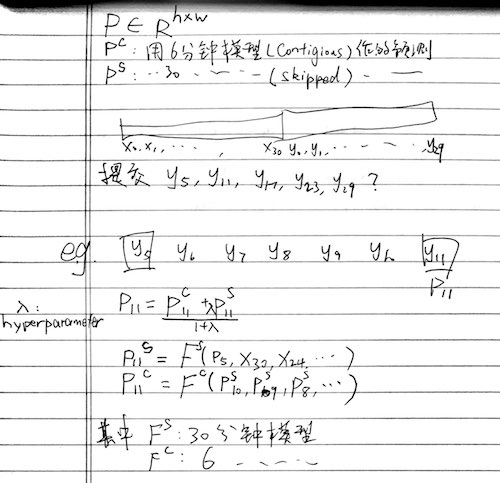 P ∈ R^{h×w}
P^C: 用6分钟模型(Contigious)作的预测
P^S: ‥30 ‥ ー ‥ ー (skipped) ‥ ー
X₀, X₁, ‥ ‥ , X₃₀ y₀, y₁, ‥ ‥ ‥ y₂₉
提交 y₅, y₁₁, y₁₇, y₂₃, y₂₉ ?
e.g. y₅ y₆ y₇ y₈ y₉ y₁₀ y₁₁
P₁₁
λ: hyperparameter
P₁₁ = (P₁₁^C + λP₁₁^S) / (1+λ)
P₁₁^S = F^S(P₅, X₃₀, X₂₄, ⋯)
P₁₁^C = F^C(P₁₀^S, P₉^S, P₈^S, ⋯)
其中 F^S: 30分钟模型
F^C: 6 ‥ ‥ ‥